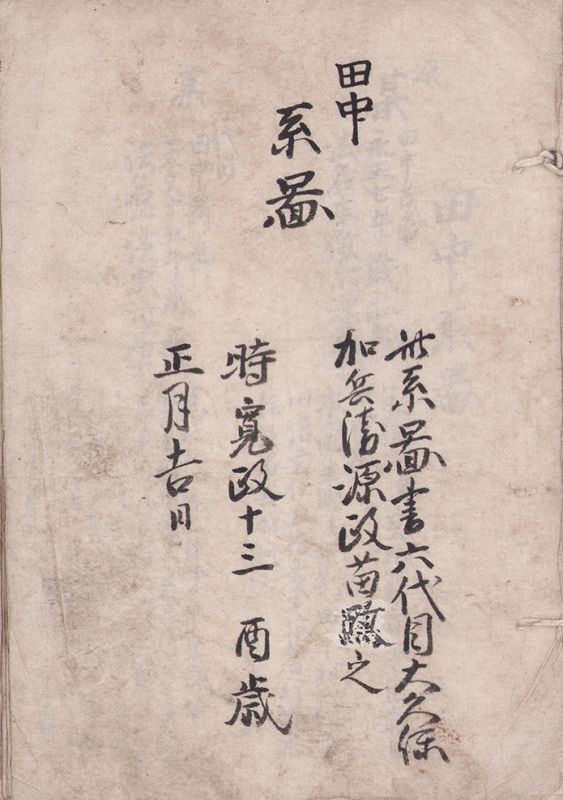 田中
系圖
此系圖書六代目大久保
加兵衛源政苗之
時寛政十三 酉歳
正月吉日